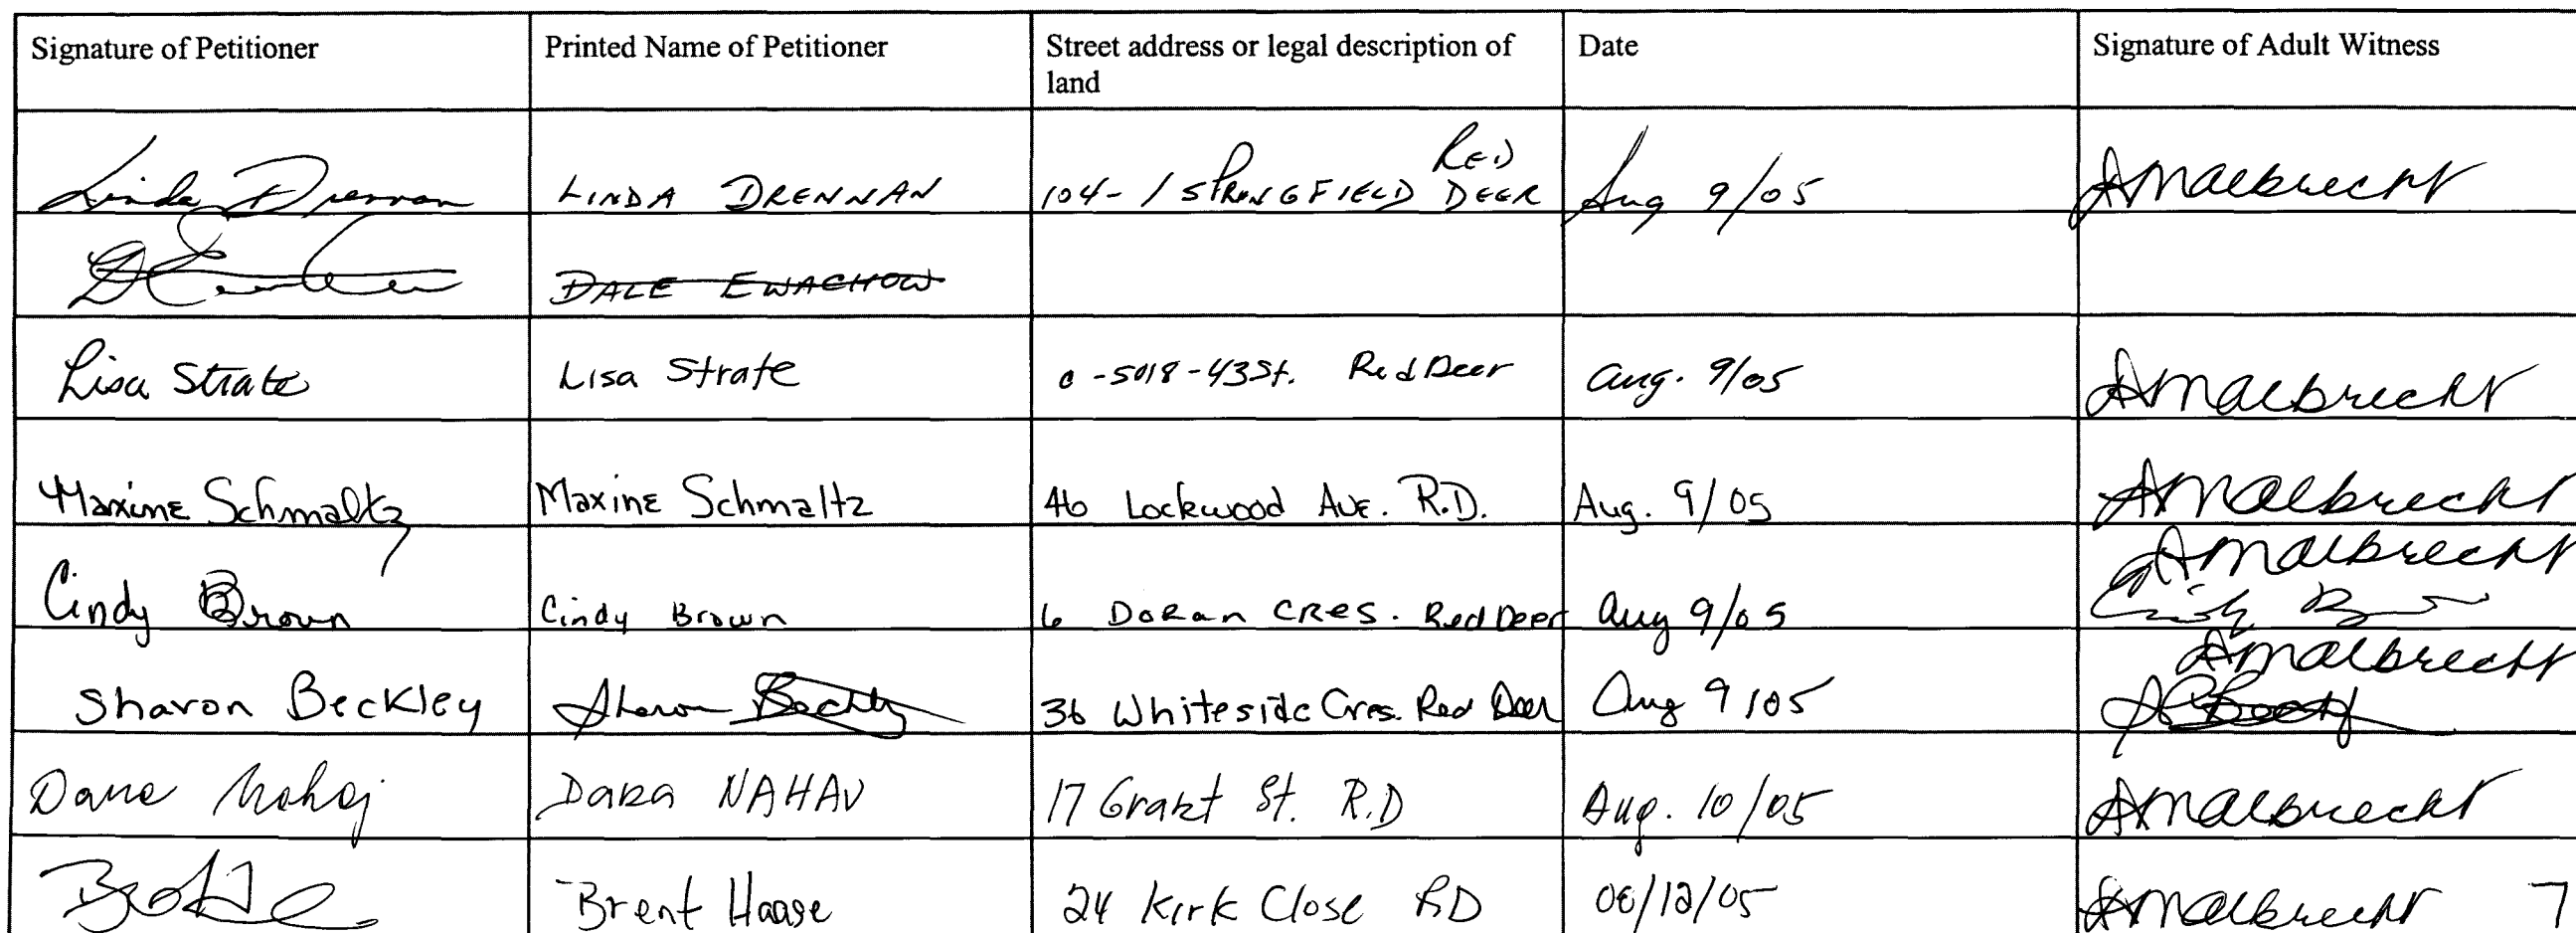 Signature of Petitioner Printed Name of Petitioner Street address or legal description of land Date Signature of Adult Witness
Linda Drennan LINDA DRENNAN 104-1 SPRINGFIELD RED DEER Aug 9/05 AMalbrecht
DALE EWACHOW
Lisa Strate Lisa Strate c-5018-43St. Red Deer Aug. 9/05 AMalbrecht
Maxine Schmaltz Maxine Schmaltz 46 Lockwood Ave. R.D. Aug. 9/05 AMalbrecht
Cindy Brown Cindy Brown 6 Doran CRES. Red Deer Aug 9/05 AMalbrecht
Cindy Brown
Sharon Beckley Sharon 36 Whiteside Cres. Red Deer Aug 9/05 AMalbrecht
Dana NAHAJ 17 Grant St. R.D Aug. 10/05 AMalbrecht
Brent Haase 24 Kirk Close RD 08/12/05 AMalbrecht 7